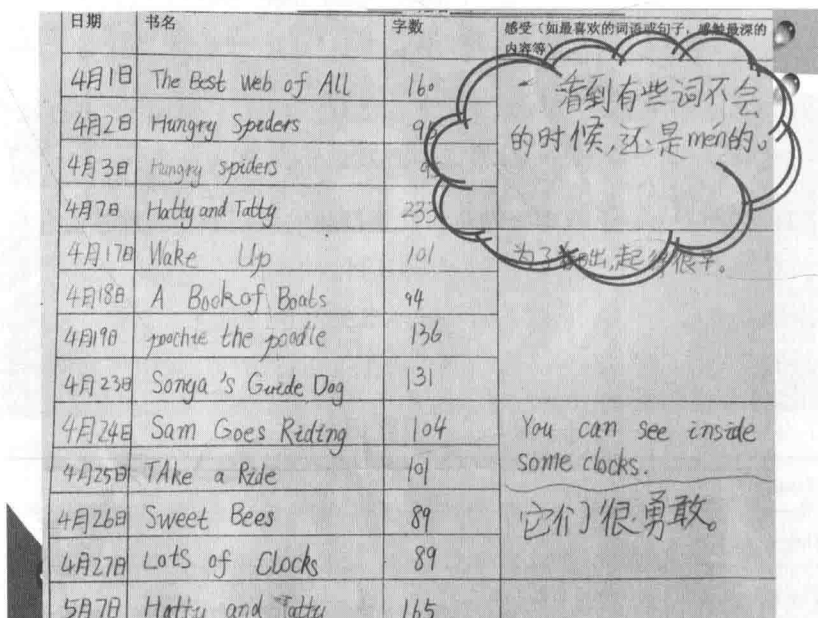 日期 书名 字数 感受（如最喜欢的词语或句子，感触最深的
内容等）
4月1日 The Best Web of All 160
看到有些词不会
4月2日 Hungry Spiders
的时候，还是mēn的。
4月3日 Hungry spiders
4月7日 Hatty and Tatty 233
4月17日 Wake Up 101
为了 出，起 很辛。
4月18日 A Book of Boats 94
4月19日 poochie the poodle 136
4月23日 Sonya's Guide Dog 131
4月24日 Sam Goes Riding 104
You can see inside
some clocks.
4月25日 TAke a Ride 101
4月26日 Sweet Bees 89
它们很勇敢。
4月27日 Lots of Clocks 89
5月7日 Hatty and Tatty 165